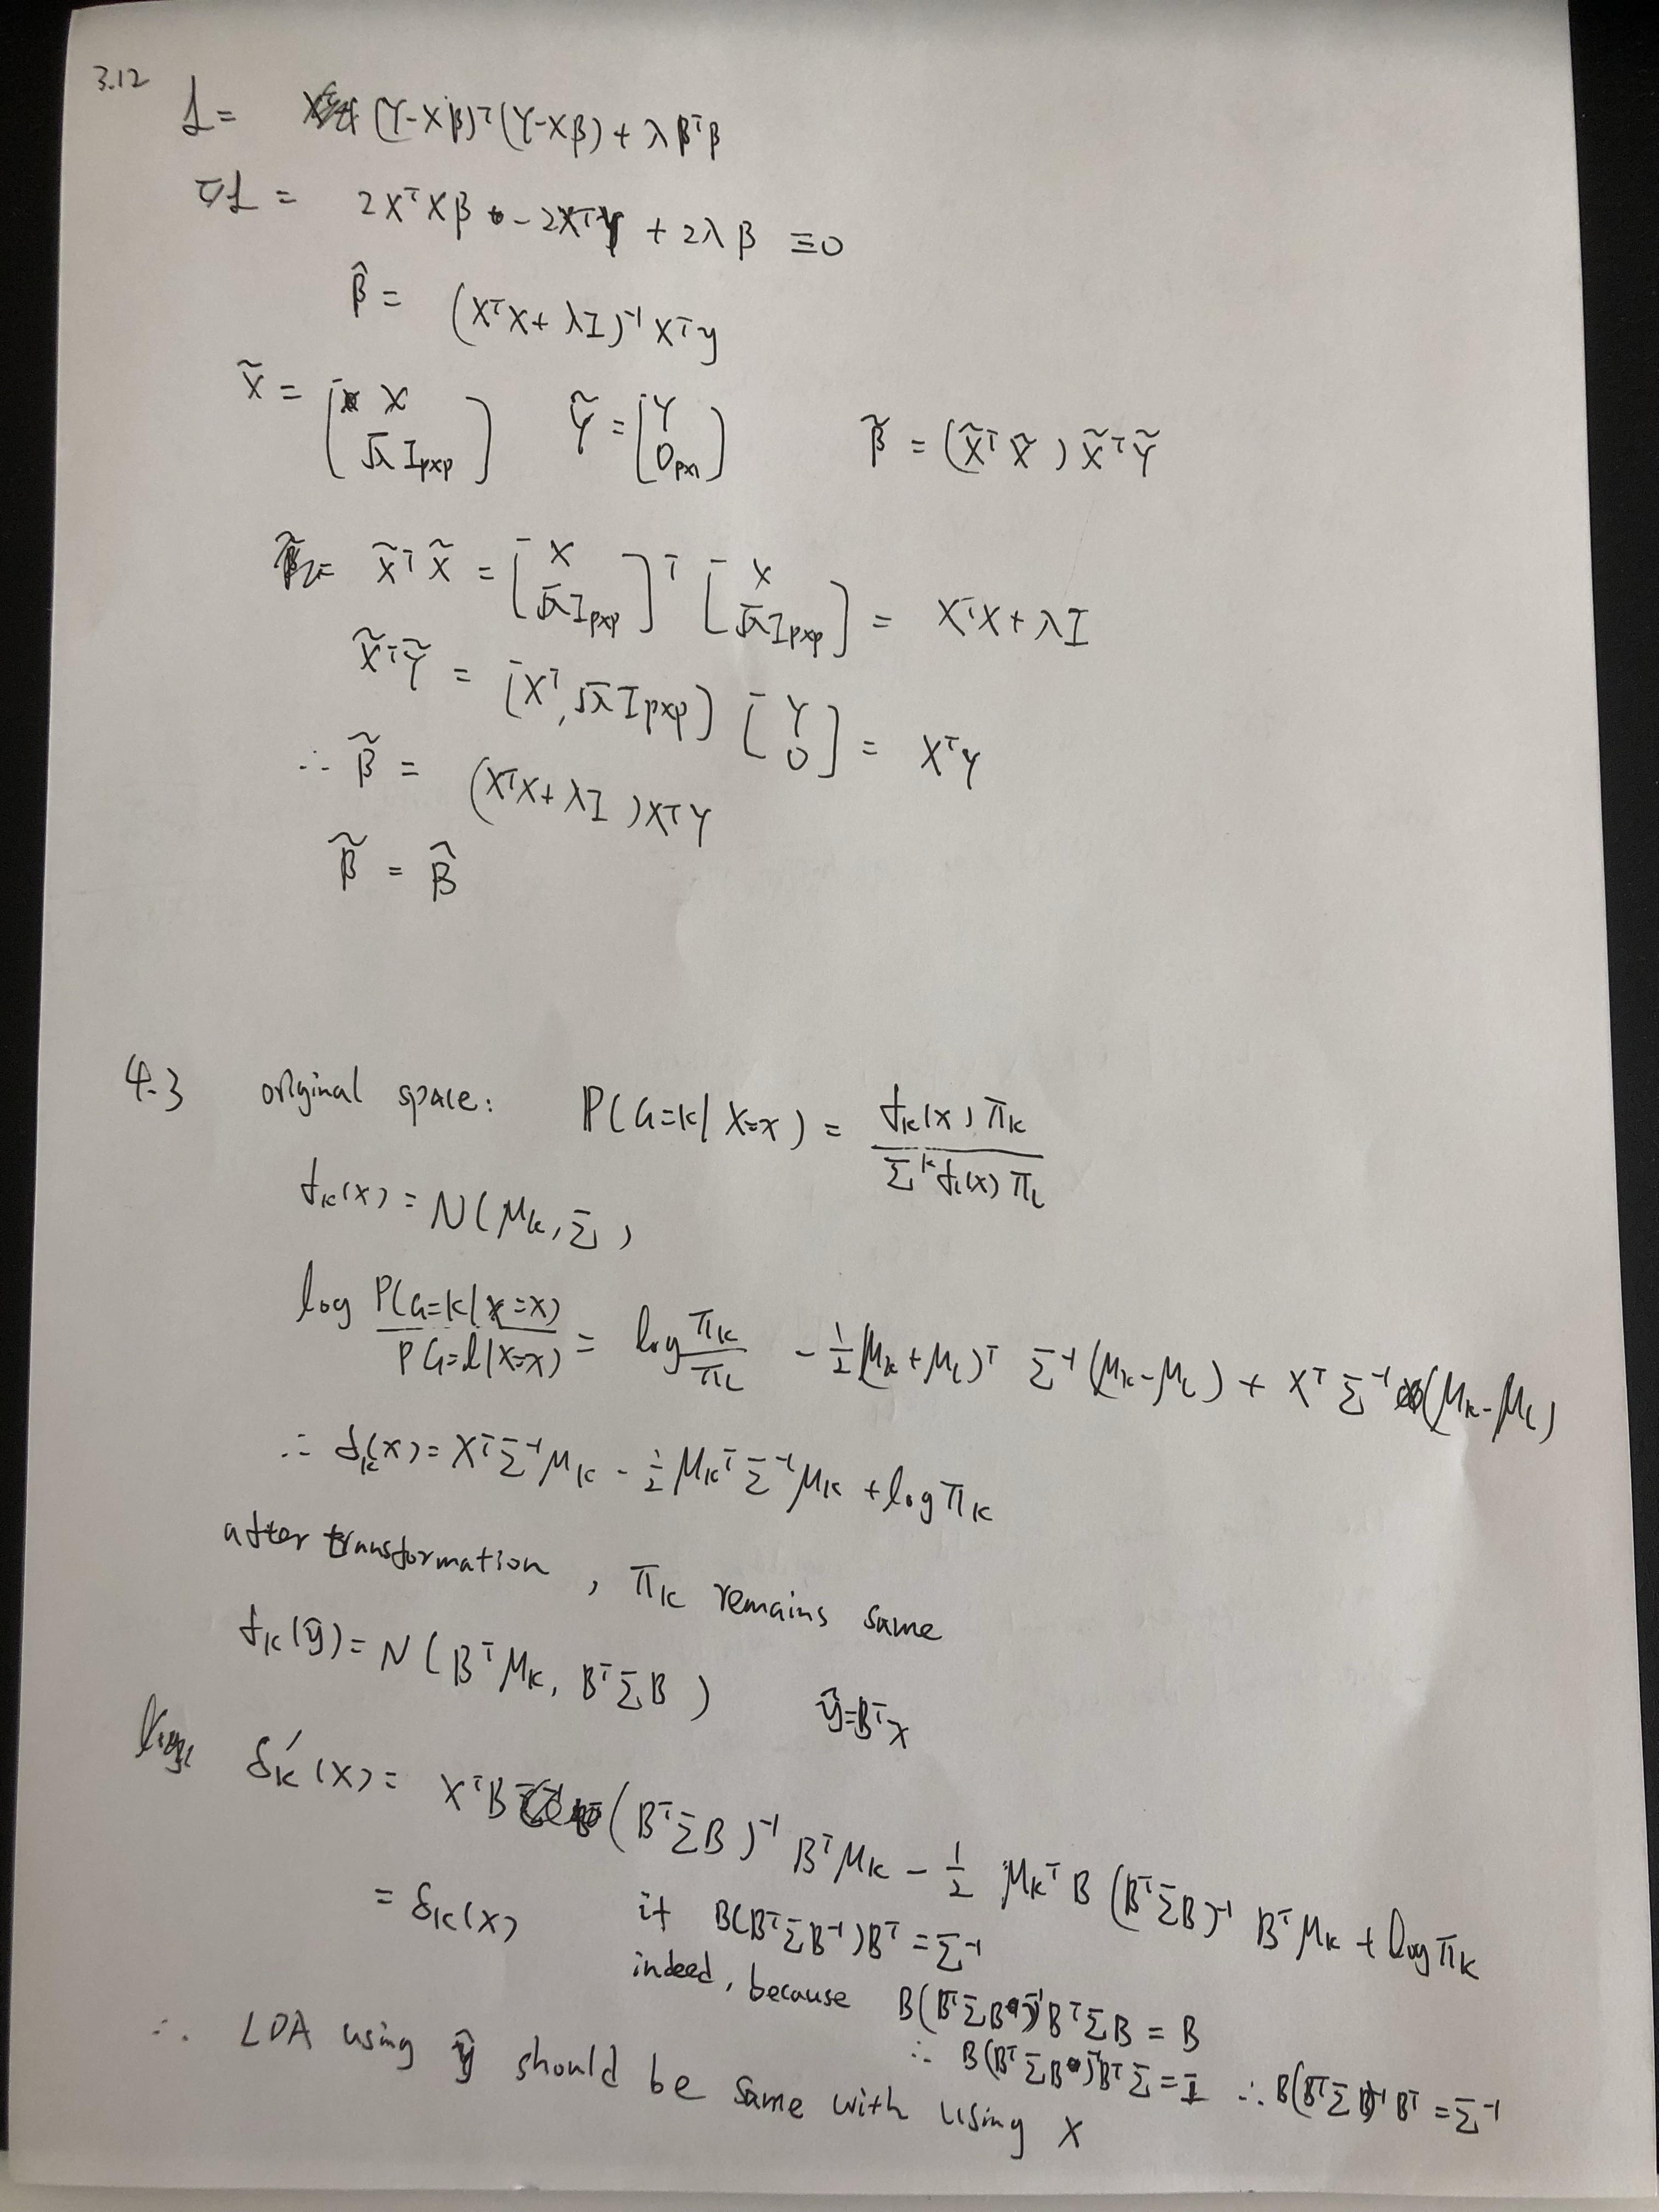 3.12
L = (Y-Xβ)ᵀ(Y-Xβ) + λβᵀβ
∇L = 2XᵀXβ - 2XᵀY + 2λβ ≡ 0
β̂ = (XᵀX + λI)⁻¹Xᵀy
X̃ = [X √λ I_{p×p}] Ỹ = [Y 0_{p×1}] β̃ = (X̃ᵀX̃)X̃ᵀỸ
= X̃ᵀX̃ = [X √λ I_{p×p}]ᵀ [X √λ I_{p×p}] = XᵀX + λI
X̃ᵀỸ = [Xᵀ, √λ I_{p×p}] [Y 0] = XᵀY
∴ β̃ = (XᵀX + λI)XᵀY
β̃ = β̂
4.3 original space: P(G=k|X=x) = f_k(x)π_k / Σᵏf_l(x)π_l
f_k(x) = N(μ_k, Σ)
log P(G=k|X=x) / P G=l|X=x) = log π_k/π_l - ½(μ_k+μ_l)ᵀ Σ⁻¹(μ_k-μ_l) + xᵀΣ⁻¹(μ_k-μ_l)
∴ δ_k(x) = xᵀΣ⁻¹μ_k - ½μ_kᵀΣ⁻¹μ_k + log π_k
after transformation, π_k remains same
f_k(ŷ) = N(Bᵀμ_k, BᵀΣB) ŷ=Bᵀx
δ'_k(x) = xᵀB(BᵀΣB)⁻¹Bᵀμ_k - ½ μ_kᵀB(BᵀΣB)⁻¹Bᵀμ_k + log π_k
= δ_k(x) if B(BᵀΣB⁻¹)Bᵀ = Σ⁻¹
indeed, because B(BᵀΣB)⁻¹BᵀΣB = B
∴ B(BᵀΣB)⁻¹BᵀΣ = I ∴ B(BᵀΣB)⁻¹Bᵀ = Σ⁻¹
∴ LDA using ŷ should be same with using X